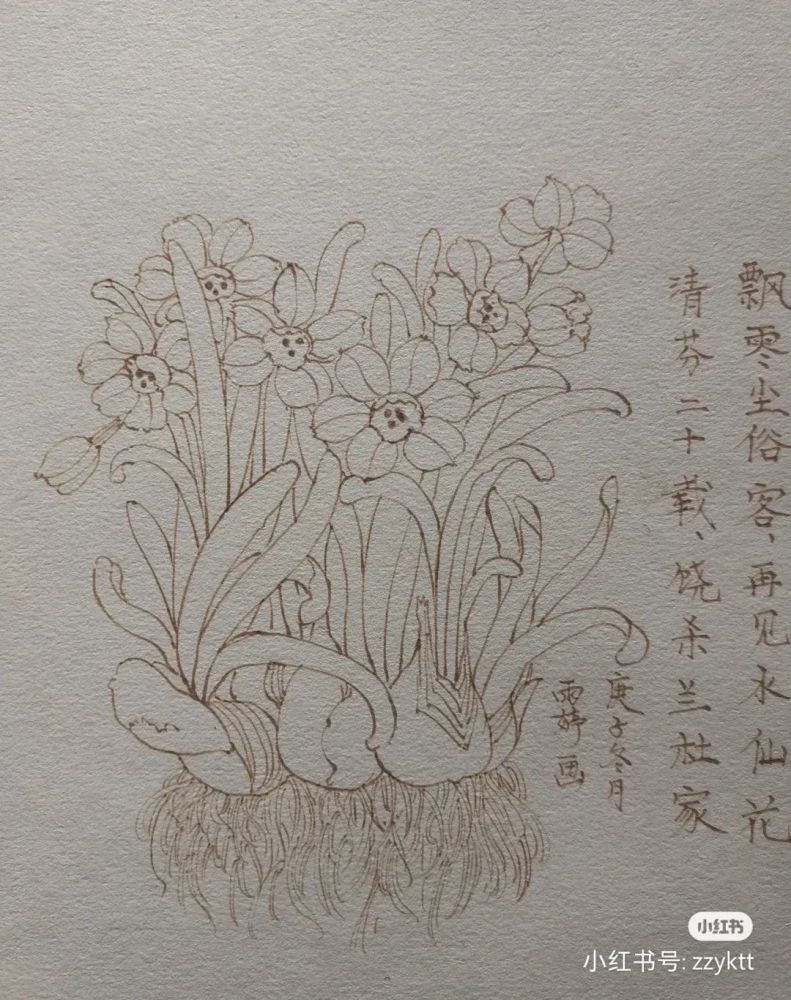 飘零尘俗客、再见水仙花
清芬二十载、饶杀兰杜家
庚子冬月
雨婷画
小红书
小红书号: zzyktt